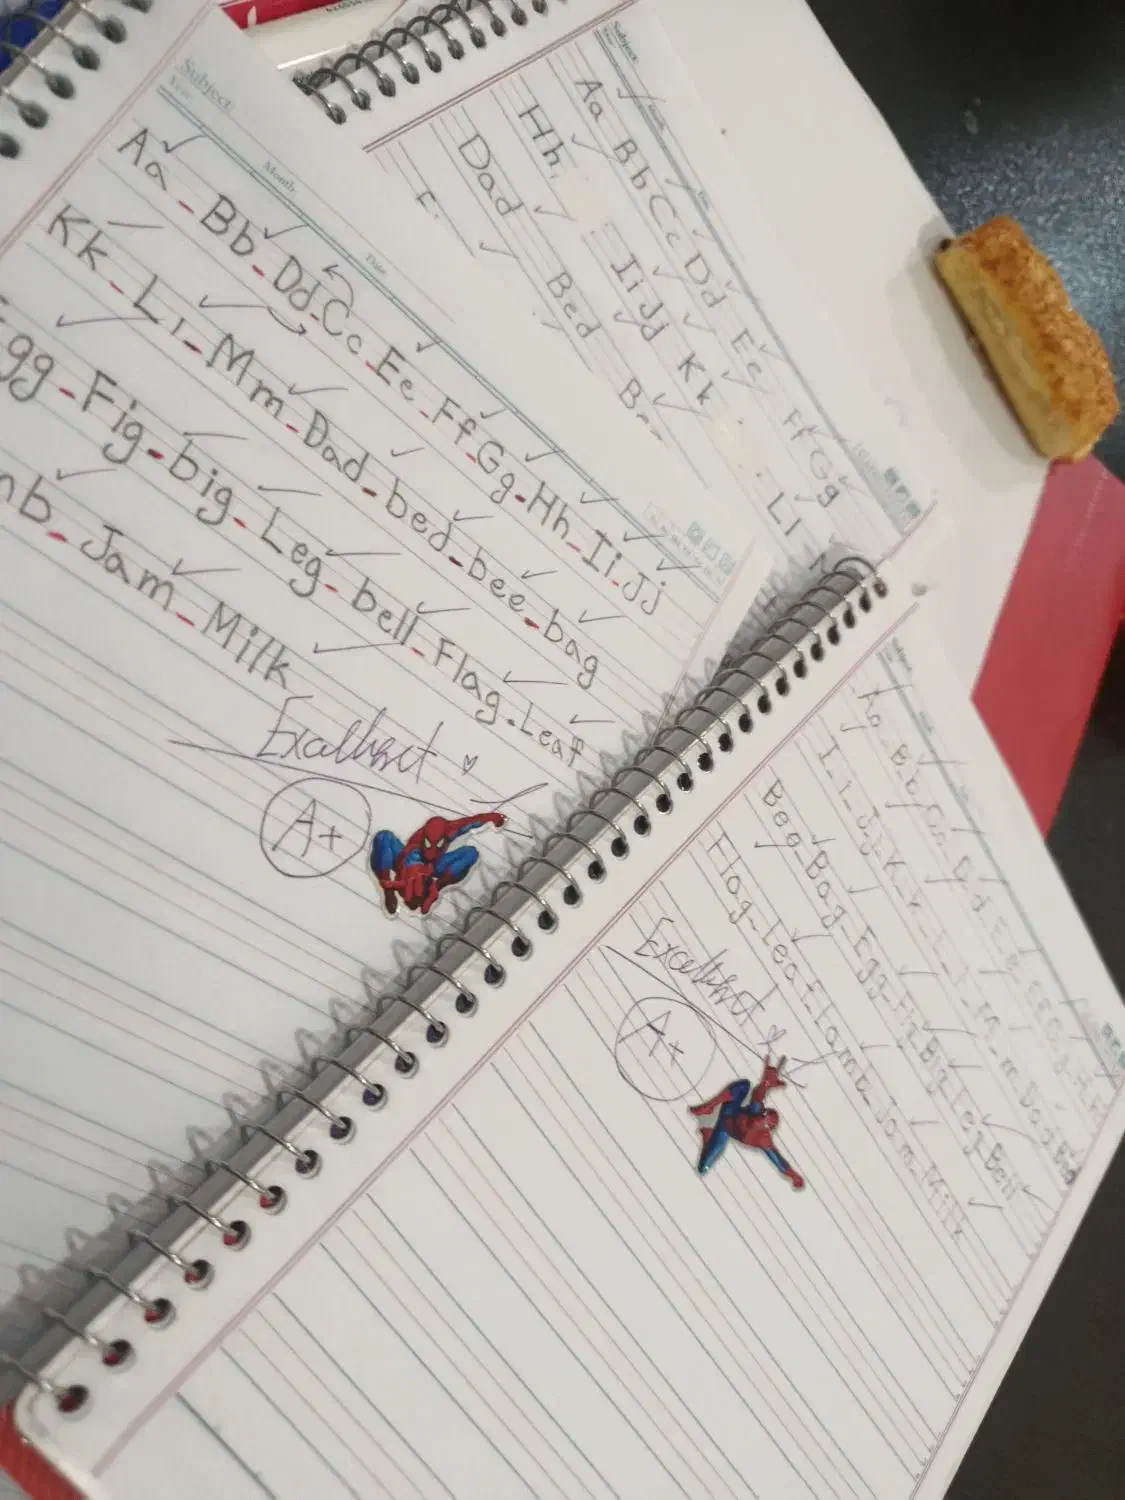 Subject
Year
Month
Date
Aa - Bb - Dd - Cc - Ee - Ff - Gg - Hh - Ii - Jj
Kk - Ll - Mm - Dad - bed - bee - bag
Egg - Fig - big - Leg - bell - Flag - Leaf
mb - Jam - Milk
Excellnect ♥
A+
Subject
Aa Bb Cc Dd Ee Ff Gg
Hh Ii Jj Kk Ll
Dad Bed
Subject
Aa - Bb - Cc - Dd - Ee - Ff - Gg - Hh
Ii - Jj - Kk - Ll - Mm - Dad Bed
Bee - Bag - Egg - Fig Big Leg Bell
Flag - Leaf lamb Jam - Milk
Excellnect ♥
A+